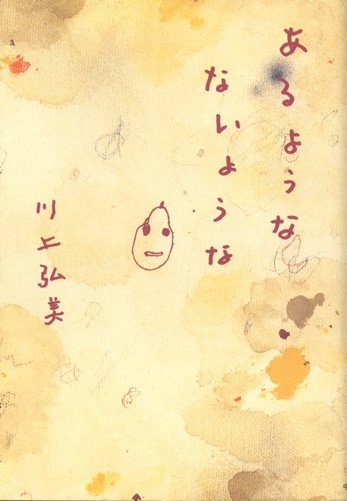 あるような
ないような
川上弘美